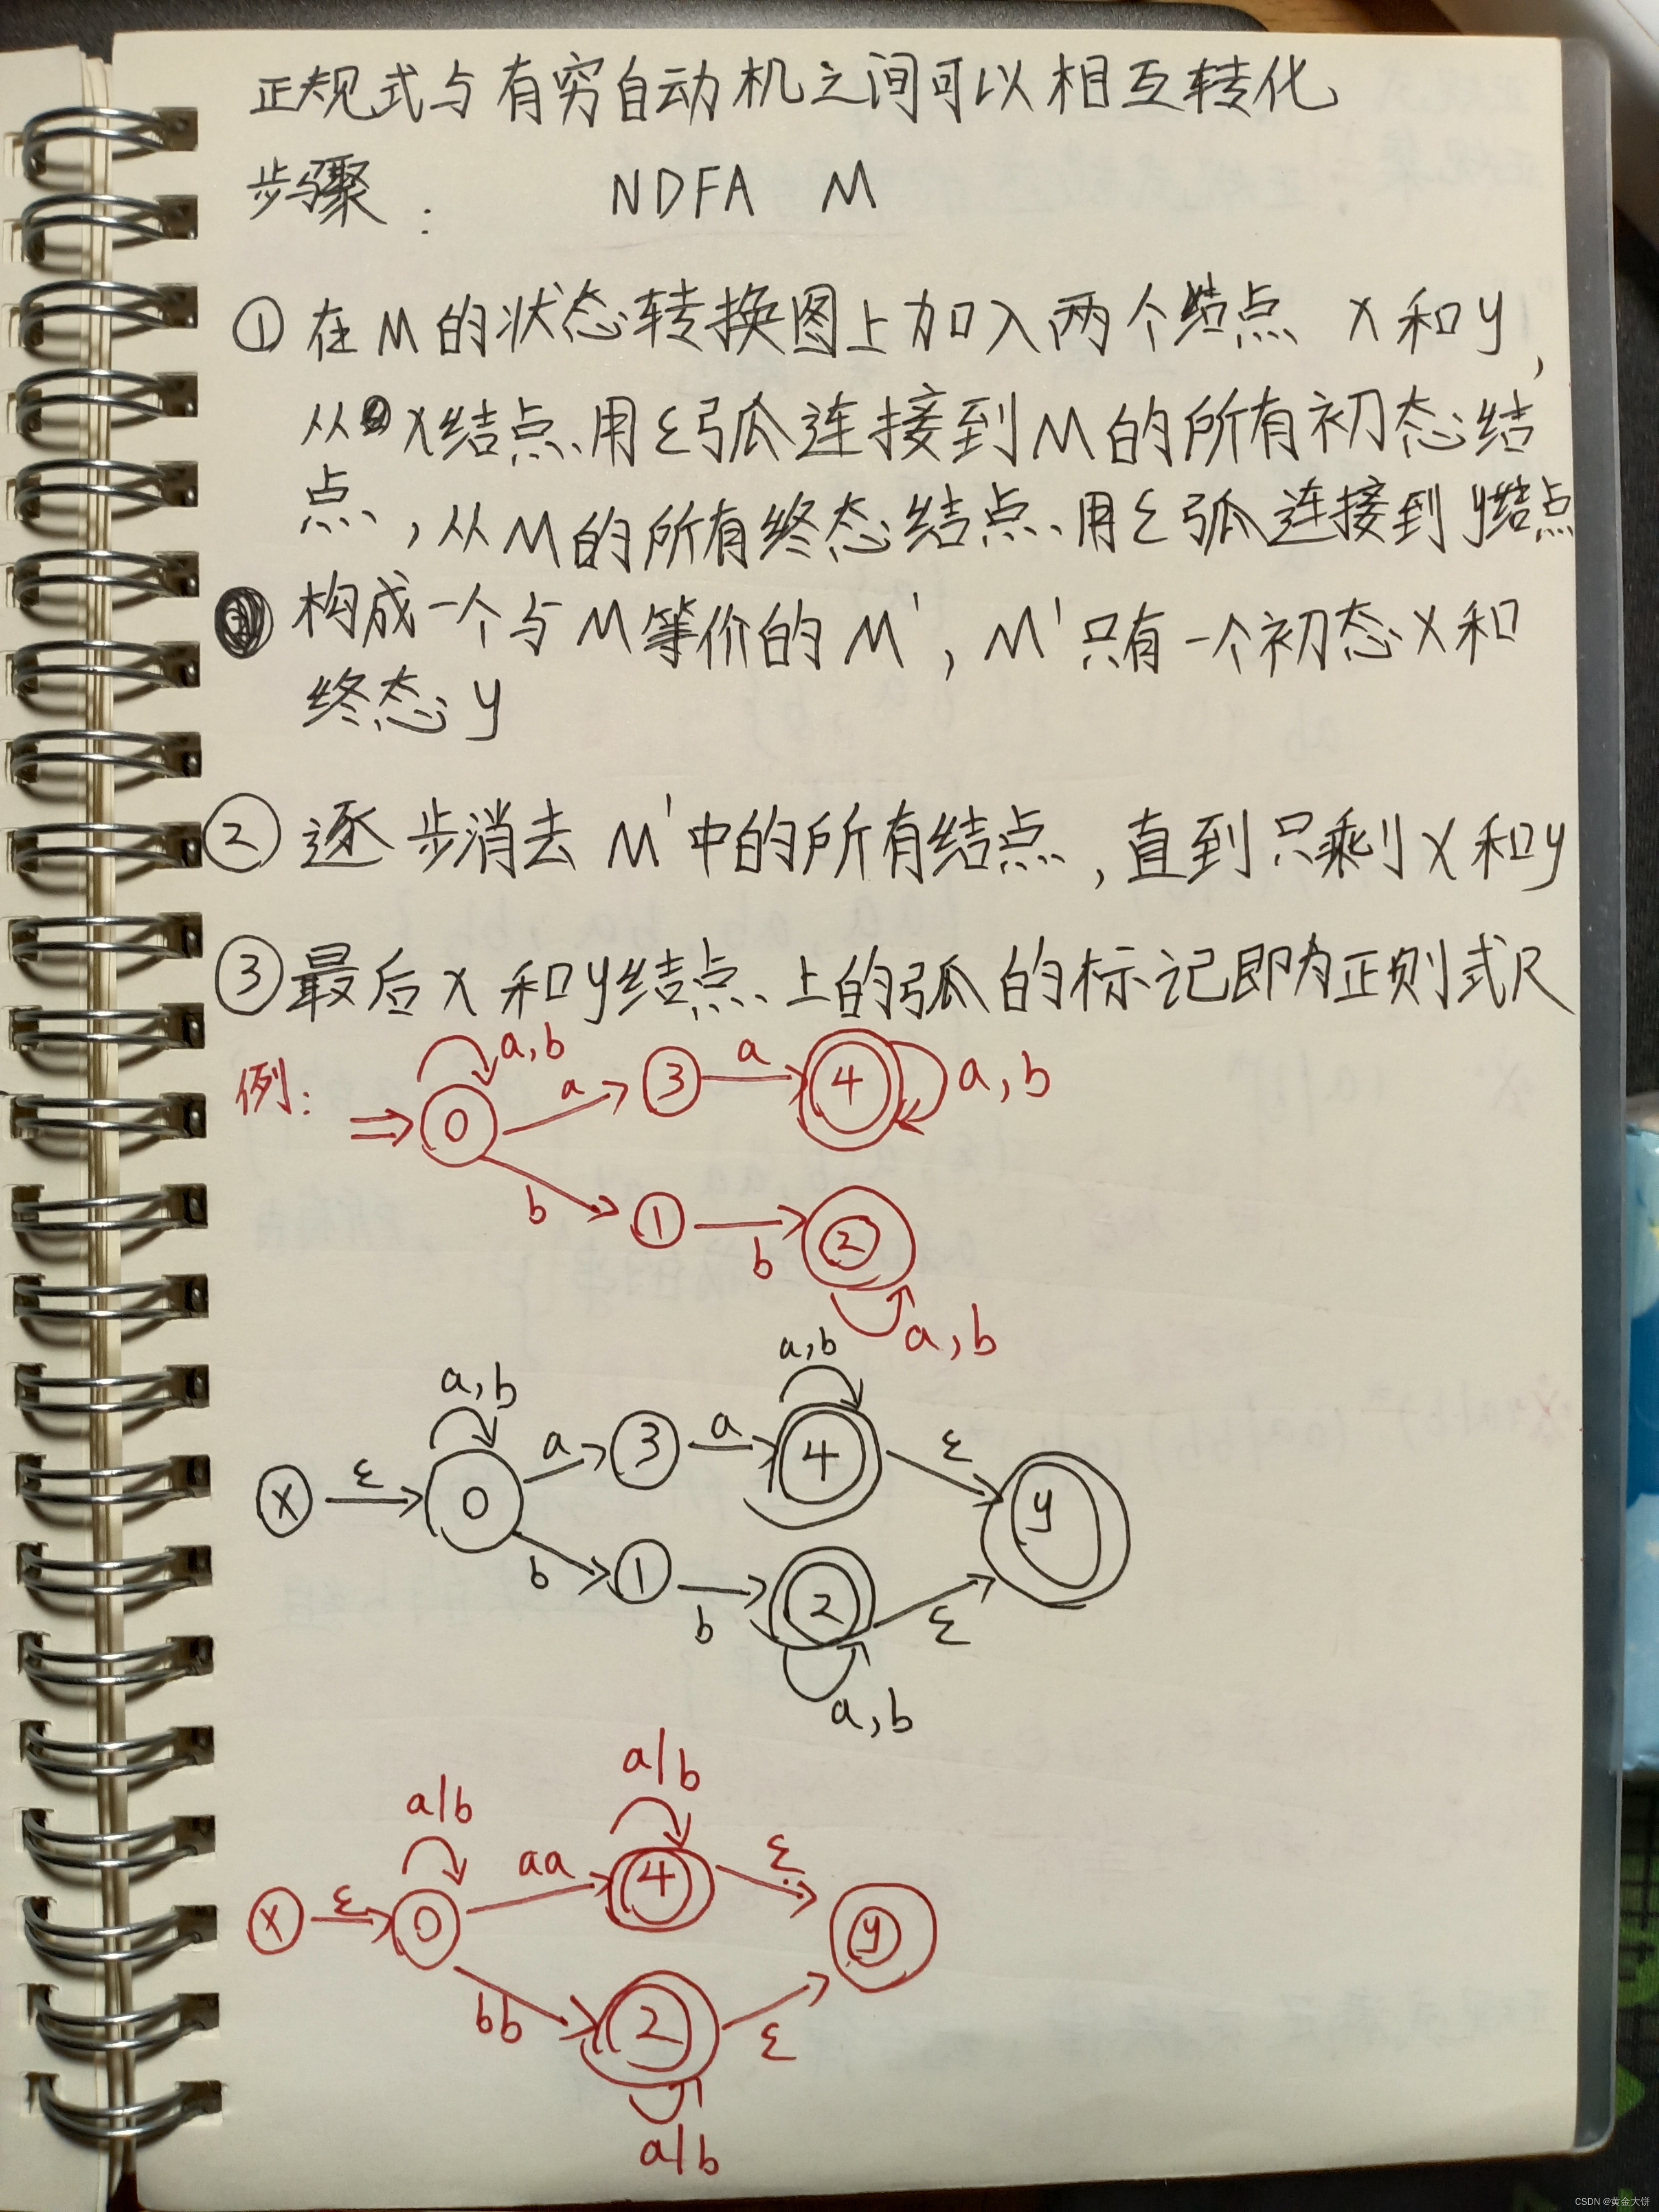 正规式与有穷自动机之间可以相互转化
步骤: NDFA M
① 在M的状态转换图上加入两个结点 X和y,
从X结点用ε弧连接到M的所有初态结
点,从M的所有终态结点用ε弧连接到y结点
构成一个与M等价的M',M'只有一个初态X和
终态y
② 逐步消去M'中的所有结点,直到只剩X和y
③ 最后X和y结点上的弧的标记即为正则式R
例:
a,b
a
a
a,b
0
3
4
b
1
b
2
a,b
a,b
a,b
X
ε
0
a
3
a
4
ε
y
b
1
b
2
ε
a,b
a|b
a|b
X
ε
0
aa
4
ε
y
bb
2
ε
a|b
CSDN @黄金大饼